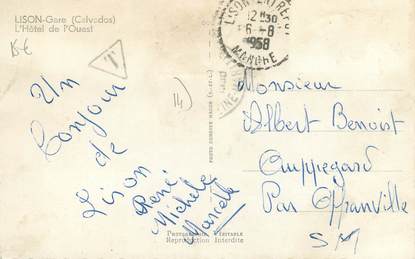 LISON-Gare (Calvados)
L'Hôtel de l'Ouest
15€
T
LISON ENTREPOT
12H30
6-8
1958
MANCHE
14
Un
Bonjour
de
Lison
René
Michèle
Marcelle
Monsieur
Albert Benoist
Auppegard
Par Offranville
S M
PHOTOGRAPHIE VÉRITABLE
Reproduction Interdite